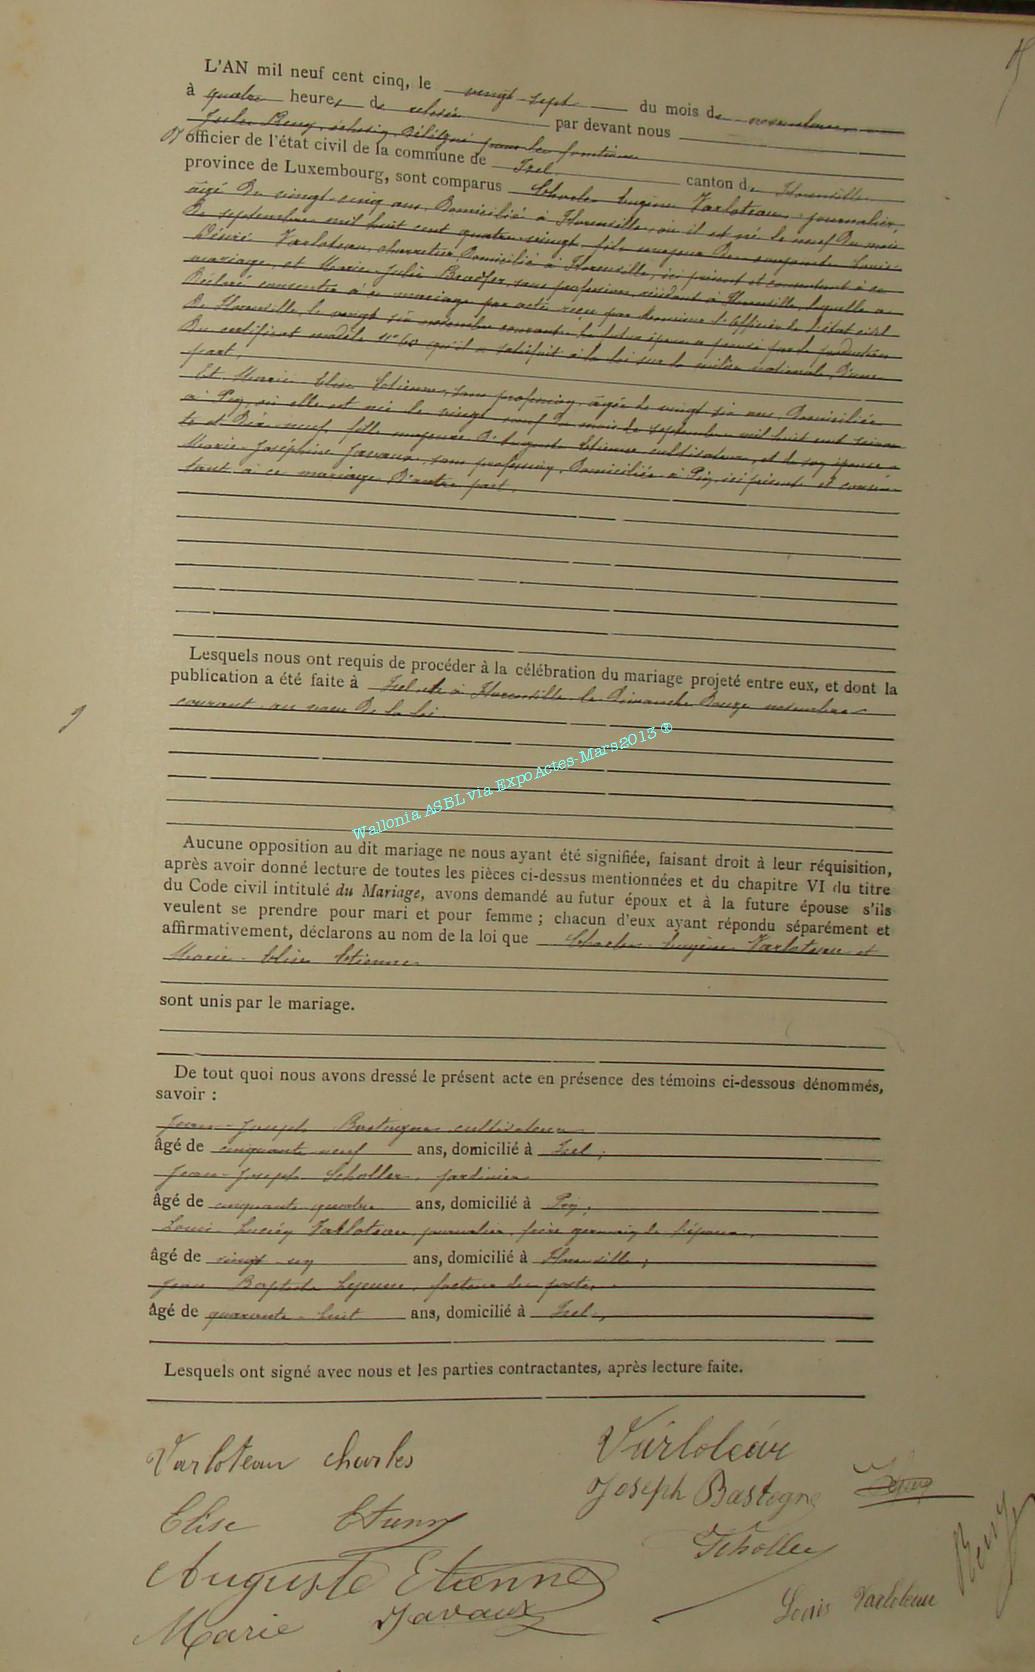 L'AN mil neuf cent cinq, le vingt-sept du mois de novembre
à quatre heures de relevée par devant nous
Jules Remy, échevin, délégué pour les fonctions
d'officier de l'état civil de la commune de Izel, canton de Florenville
province de Luxembourg, sont comparus Charles Eugène Varloteau, journalier,
âgé de vingt-cinq ans, domicilié à Florenville, où il est né le neuf du mois
de septembre mil huit cent quatre-vingt, fils majeur des conjoints Louis
Désiré Varloteau, charretier, domicilié à Florenville, ici présent et consentant à ce
mariage, et Marie-Julie sans profession, résidant à Florenville, laquelle a
déclaré consentir à ce mariage par acte reçu par Monsieur l'officier de l'état civil
de Florenville, le vingt six novembre courant. Le futur époux a prouvé par la production
du certificat modèle n° qu'il a satisfait à la loi sur la milice nationale, d'une
part,
Et Marie-Elise Etienne, sans profession, âgée de vingt six ans, domiciliée
à Pin, où elle est née le vingt neuf du mois de septembre mil huit cent soixan-
te et dix-neuf, fille majeure d'Auguste Etienne cultivateur, et de son épouse
Marie-Joséphine Javaux, sans profession, domiciliés à Pin, ici présents et consen-
tant à ce mariage, d'autre part.
Lesquels nous ont requis de procéder à la célébration du mariage projeté entre eux, et dont la
publication a été faite à Izel et à Florenville le dimanche douze novembre
courant au vœu de la loi.
Wallonia ASBL via ExpoActes-Mars2013 ®
Aucune opposition au dit mariage ne nous ayant été signifiée, faisant droit à leur réquisition,
après avoir donné lecture de toutes les pièces ci-dessus mentionnées et du chapitre VI du titre
du Code civil intitulé du Mariage, avons demandé au futur époux et à la future épouse s'ils
veulent se prendre pour mari et pour femme ; chacun d'eux ayant répondu séparément et
affirmativement, déclarons au nom de la loi que Charles-Eugène Varloteau et
Marie-Elise Etienne
sont unis par le mariage.
De tout quoi nous avons dressé le présent acte en présence des témoins ci-dessous dénommés,
savoir :
Jean-Joseph Bastogne cultivateur
âgé de cinquante neuf ans, domicilié à Izel ;
Jean-Joseph Scholler, jardinier
âgé de cinquante quatre ans, domicilié à Pin ;
Louis Lucien Varloteau journalier, frère germain de l'époux,
âgé de vingt-un ans, domicilié à Florenville ;
Jean Baptiste Lejeune, facteur des postes,
âgé de quarante-huit ans, domicilié à Izel,
Lesquels ont signé avec nous et les parties contractantes, après lecture faite.
Varloteau Charles
Varloteau
Joseph Bastogne
Elise Etienne
Scholler
Auguste Etienne
Remy
Louis Varloteau
Marie Javaux